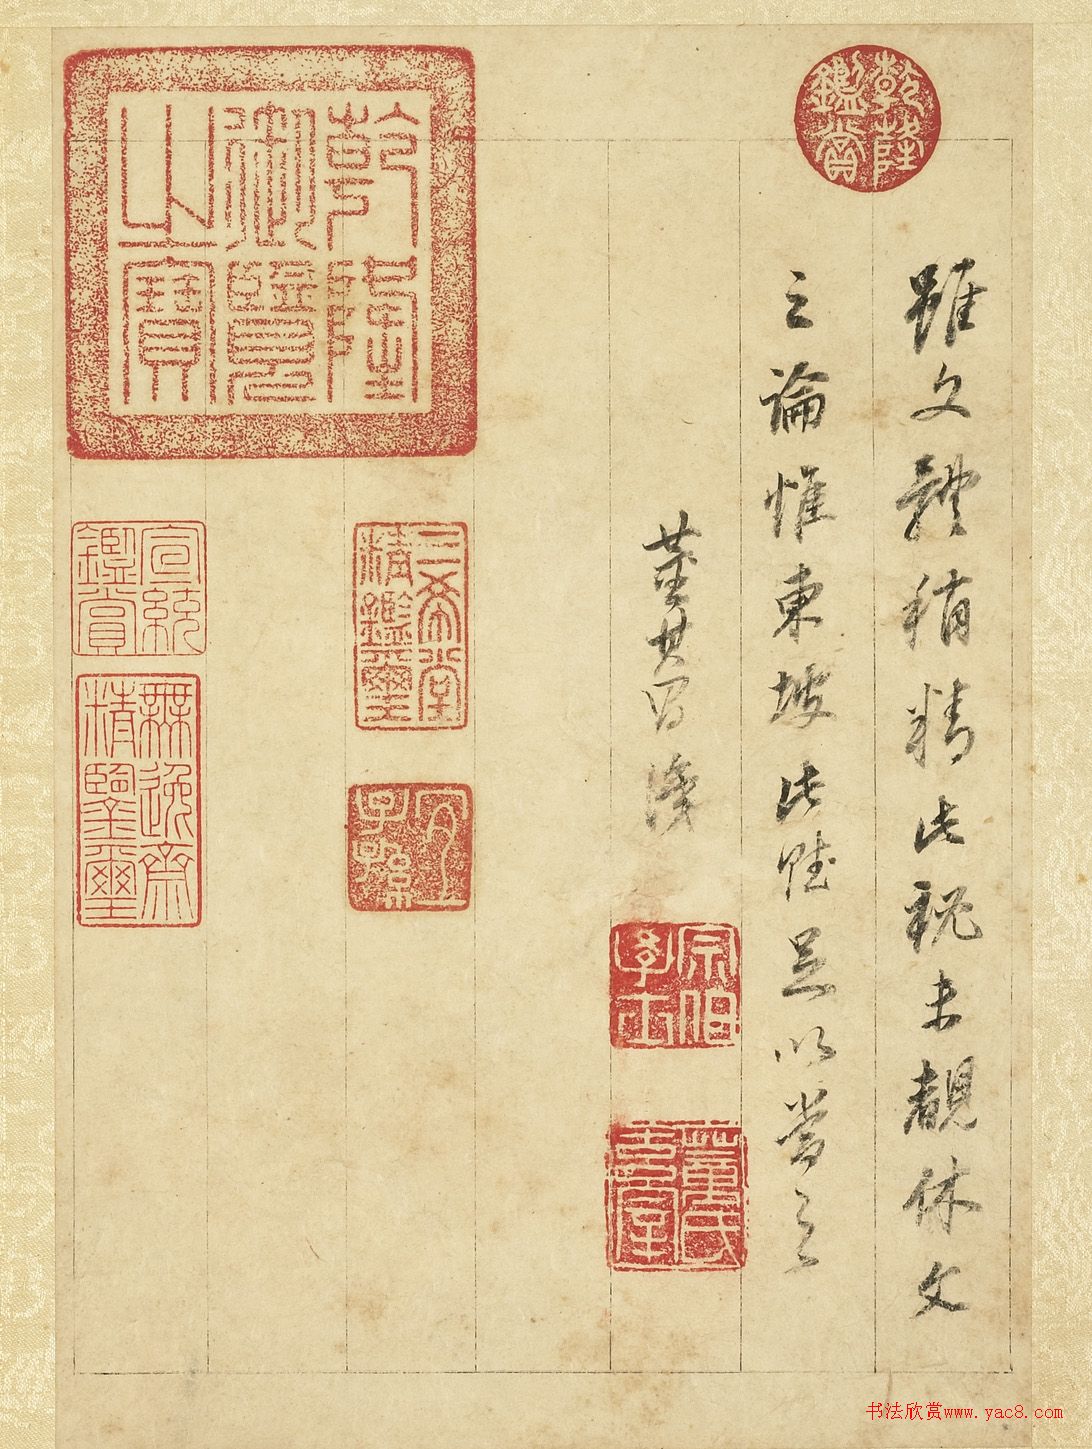 雖文體稍精此秘未覩休文
之論惟東坡此賦足以當之
董其昌識
宗伯學士
董氏玄宰
乾隆鑑賞
乾隆御覽之寶
三希堂精鑑璽
宜子孫
宣統鑑賞
無逸齋精鑒璽
书法欣赏www.yac8.com